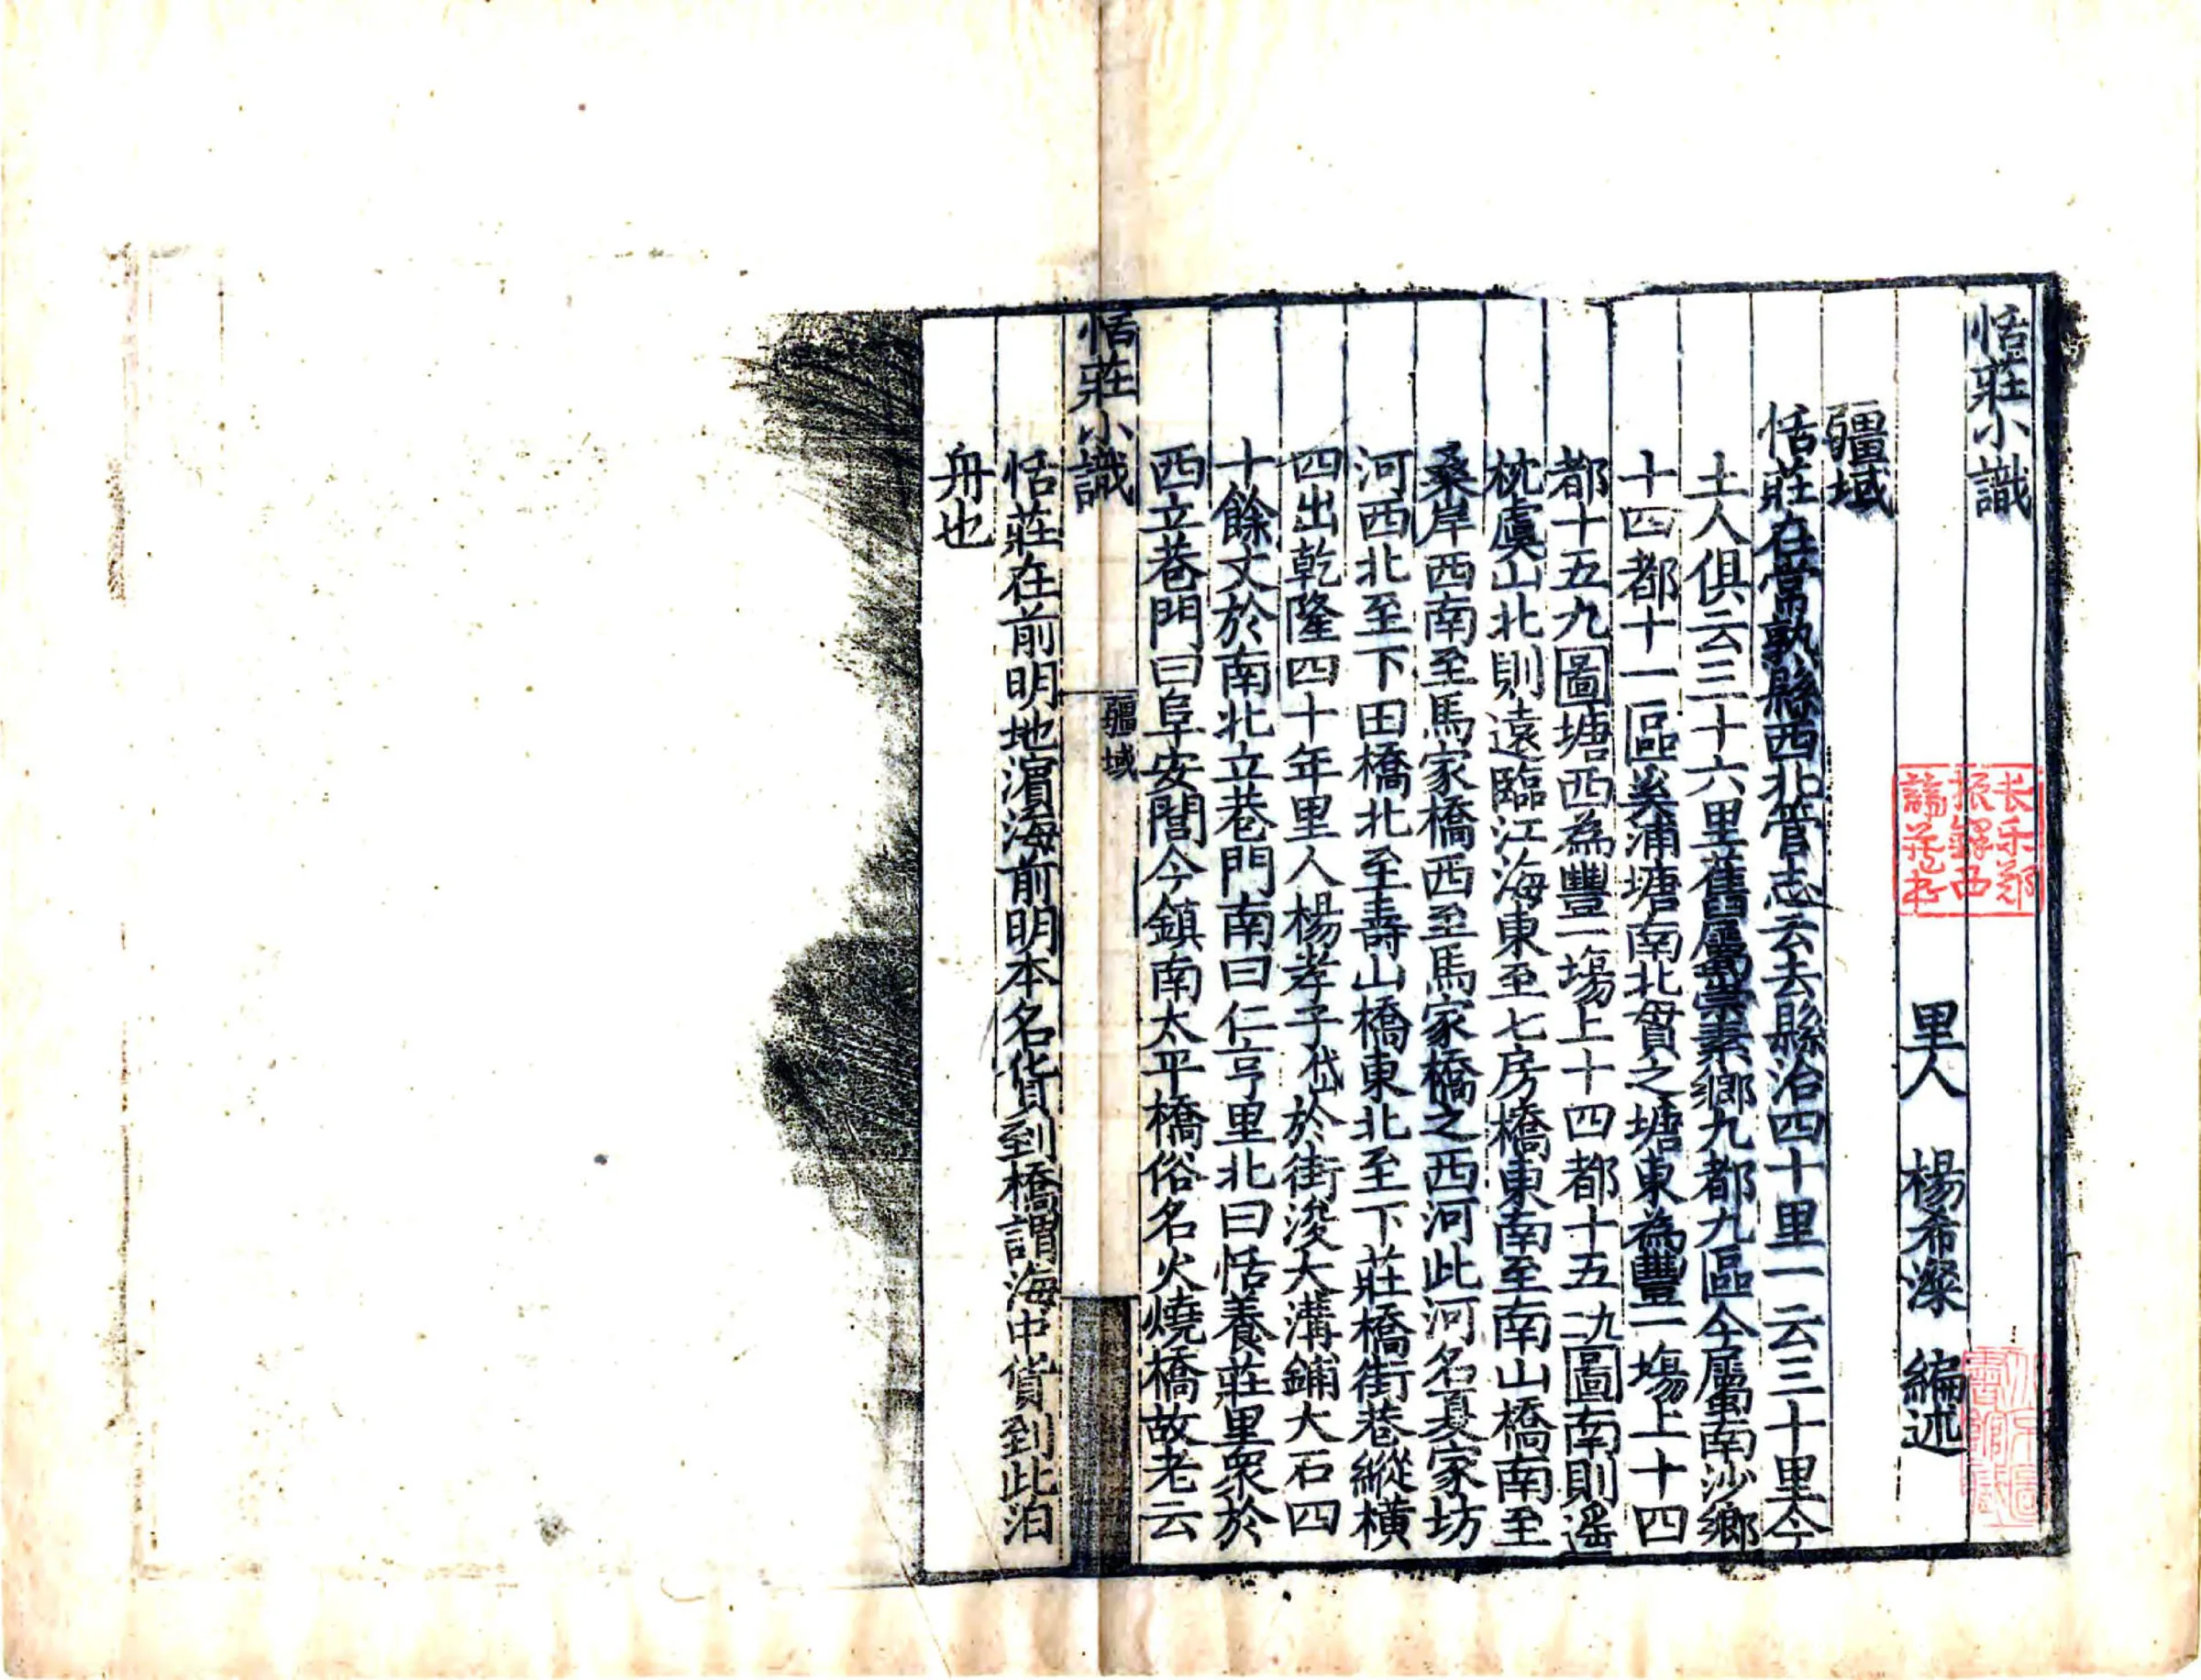 恬莊小識
里人 楊希濴 編述
疆域
恬莊在常熟縣西北管志云去縣治四十里一云三十里今
土人俱云三十六里舊屬崇素鄉九都九區今屬南沙鄉
十四都十一區奚浦塘南北貫之塘東為豐一場上十四
都十五九圖塘西為豐一場上十四都十五九圖南則遥
枕虞山北則遠臨江海東至七房橋東南至南山橋南至
桑岸西南至馬家橋西至馬家橋之西河此河名夏家坊
河西北至下田橋北至壽山橋東北至下莊橋街巷縱横
四出乾隆四十年里人楊孝子岱於街浚大溝鋪大石四
十餘丈於南北立巷門南曰仁亨里北曰恬養莊里衆於
西立巷門曰阜安閭今鎮南太平橋俗名火燒橋故老云
恬莊小識
疆域
恬莊在前明地濵海前明本名貨到橋謂海中貨到此泊
舟也
长乐郑
振铎西
谛藏书